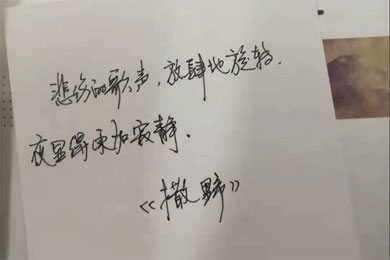 悲伤的歌声，放肆地旋转．
夜显得更加寂静．
《撒野》